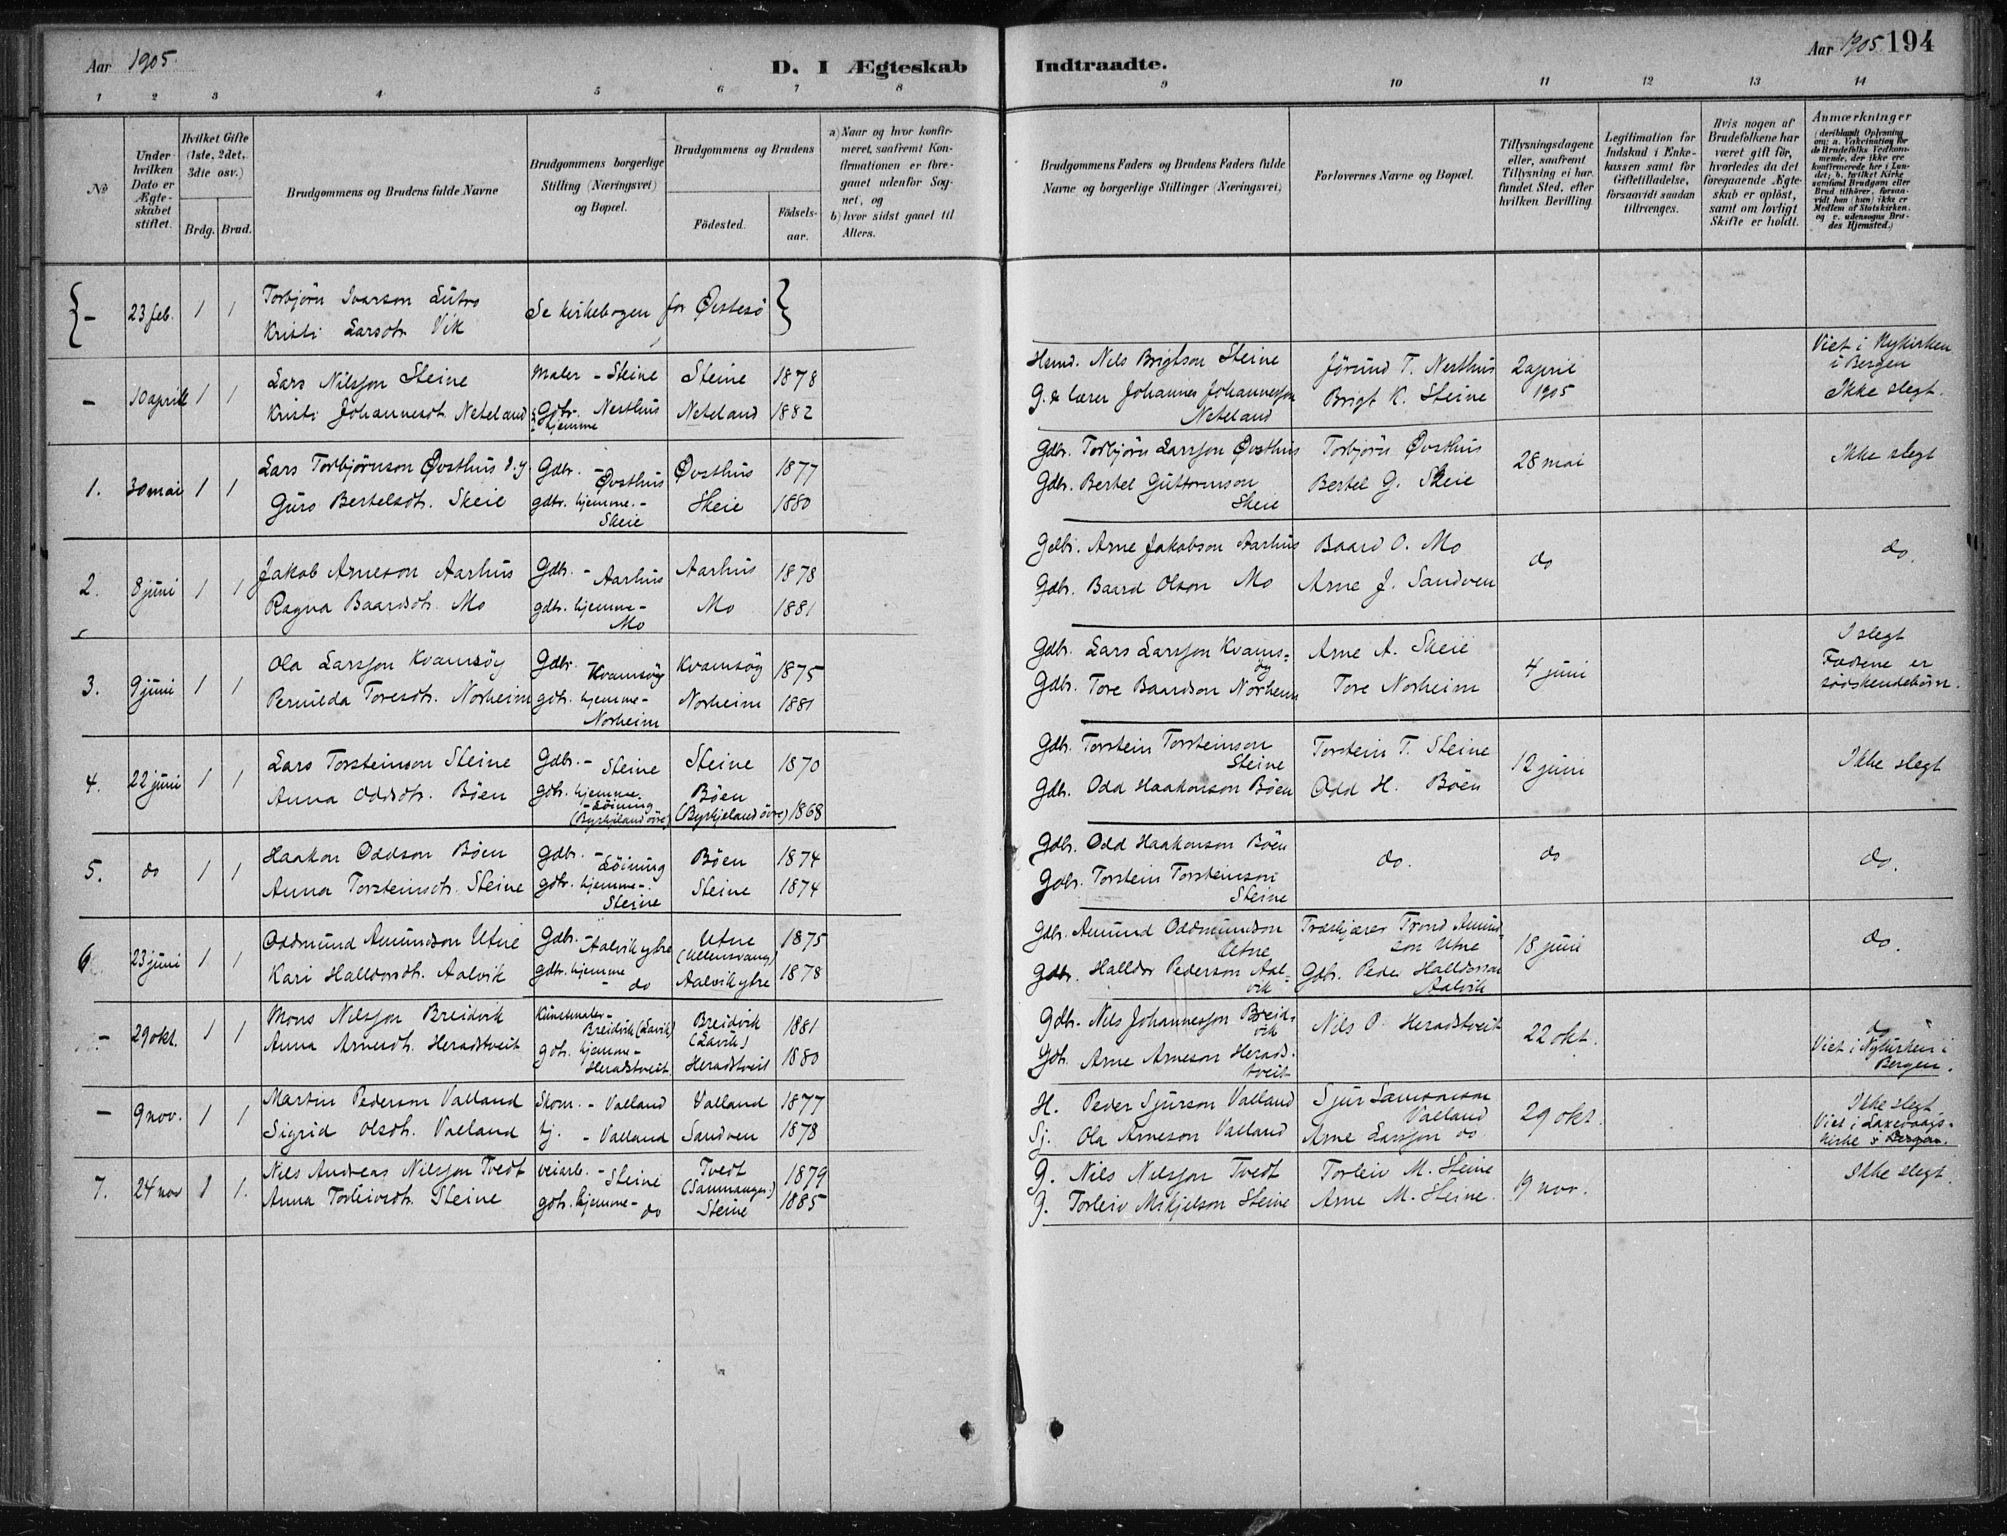 Aar 1905.
D. I Ægteskab
Indtraadte.
Aar 1905 194
1 2 3 4 5 6 7 8
9 10 11 12 13 14
No
Under hvilken Dato er Ægteskabet stiftet.
Hvilket Gifte (1ste, 2det, 3die osv.)
Brdg. Brud.
Brudgommens og Brudens fulde Navne
Brudgommens borgerlige Stilling (Næringsvei) og Bopæl.
Brudgommens og Brudens
Födested. Födselsaar.
a) Naar og hvor konfirmeret, saafremt Konfirmationen er foregaaet udenfor Sognet, og
b) hvor sidst gaaet til Alters.
Brudgommens Faders og Brudens Faders fulde Navne og borgerlige Stillinger (Næringsvei)
Forlovernes Navne og Bopæl.
Tillysningsdagene eller, saafremt Tillysning ei har fundet Sted, efter hvilken Bevilling.
Legitimation for Indskud i Enkekassen samt for Giftetilladelse, forsaavidt saadan tiltrænges.
Hvis nogen af Brudefolkene har været gift för, hvorledes da det foregaaende Ægteskab er oplöst, samt om lovligt Skifte er holdt.
Anmærkninger
(deriblandt Oplysning om: a. Vakcination for de Brudefolks Vedkommende, der ikke ere konfirmerede her i Landet; b. hvilket Kirkesamfund Brudgom eller Brud tilhörer, forsaavidt han (hun) ikke er Medlem af Statskirken. og c. udensogns Brudes Hjemsted.)
- 23 feb. 1 1 Torbjörn Ivarson Lutro
Kristi Larsdtr. Vik
Se kirkebogen for Östesö
- 10 april 1 1 Lars Nilsson Steine Maler - Steine Steine 1878
Kristi Johannesdt. Neteland Gdbr. Nerthus hjemme Neteland 1882
Hsmd. Nils Brigtson Steine Jörund T. Nerthus 2 april 1905
G. & lærer Johannes Johannesson Neteland Brigt K. Steine
Viet i Nykirken i Bergen
Ikke slegt.
1. 30 mai 1 1 Lars Torbjörnson Övsthus d.y. Gdbr. - Övsthus Övsthus 1877
Guro Bertelsdt. Skeie gdtr. hjemme. - Skeie Skeie 1880
Gdbr. Torbjörn Larsson Övsthus Torbjörn Övsthus 28 mai Ikke slegt
Gdbr. Bertel Guttormson Skeie Bertel G. Skeie
2. 8 juni 1 1 Jakob Arneson Aarhus Gdbr. - Aarhus Aarhus 1878
Ragna Baardsdt. Mo gdtr. hjemme - Mo Mo 1881
Gdbr. Arne Jakobson Aarhus Baard O. Mo do do.
Gdbr. Baard Olson Mo Arne J. Sandven
3. 9 juni 1 1 Ola Larsson Kvamsöy Gdbr. Kvamsöy Kvamsöy 1875
Pernilda Toresdt. Norheim gdtr. hjemme - Norheim Norheim 1881
Gdbr. Lars Larsson Kvamsöy Arne A. Skeie 4 juni
Gdbr. Tore Baardson Norheim Tore Norheim
I slegt
Fædrene er
södskendebörn.
4. 22 juni 1 1 Lars Torsteinson Steine Gdbr. - Steine Steine 1870
Anna Oddsdt. Böen gdtr. hjemme. - Löining (Byrkjeland övre) Böen (Byrkjeland övre) 1868
Gdbr. Torstein Torsteinson Steine Torstein T. Steine 12 juni Ikke slegt
Gdbr. Odd Haakonson Böen Odd H. Böen
5. do 1 1 Haakon Oddson Böen Gdbr. - Löining Böen 1874
Anna Torsteinsdt. Steine gdtr. hjemme - Steine Steine 1874
Gdbr. Odd Haakonson Böen do. do do.
Gdbr. Torstein Torsteinson Steine
6. 23 juni 1 1 Oddmund Amundson Utne Gdbr. - Aalvik ytre Utne (Ullensvang) 1875
Kari Halldorsdt. Aalvik gdtr. hjemme - do Aalvik ytre 1878
Gdbr. Amund Oddmundson Utne Træskjærer Trond Amundson Utne 18 juni do.
Gdbr. Halldor Pederson Aalvik Gdbr. Peder Halldorson Aalvik
- 29 okt. 1 1 Mons Nilsson Breidvik Kunstmaler - Breidvik (Lavik) Breidvik (Lavik) 1881
Anna Arnesdt. Heradstveit gdtr. hjemme - Heradstveit Heradstveit 1880
Gdbr. Nils Johannesson Breidvik Nils P. Heradstveit 22 okt.
Gdb. Arne Arneson Heradstveit
do
Viet i Nykirken i Bergen.
- 9 nov. 1 1 Martin Pederson Valland Skom. - Valland Valland 1877
Sigrid Olsdt. Valland hj. - Valland Sandven 1878
H. Peder Sjurson Valland Sjur Samsonson Valland 29 okt.
Sj. Ola Arneson Valland Arne Larsson do
Ikke slegt
Viet i Laxevaagskirke v Bergen.
7. 24 nov 1 1. Nils Andreas Nilsson Tvedt veiarb. - Steine Tvedt (Samnanger) 1879
Anna Torleivsdt. Steine gdtr. hjemme - do Steine 1885
G. Nils Nilsson Tvedt Torleiv M. Steine 19 nov. Ikke slegt.
G. Torleiv Mikjelson Steine Arne M. Steine.